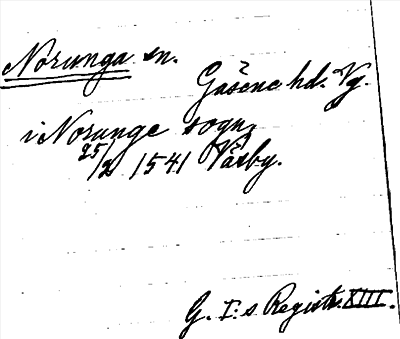 Norunga sn.
Gäsene hd. Vg.
i Norunge sogn
25/2 1541 Väsby.
G. I:s Registr. XIII.